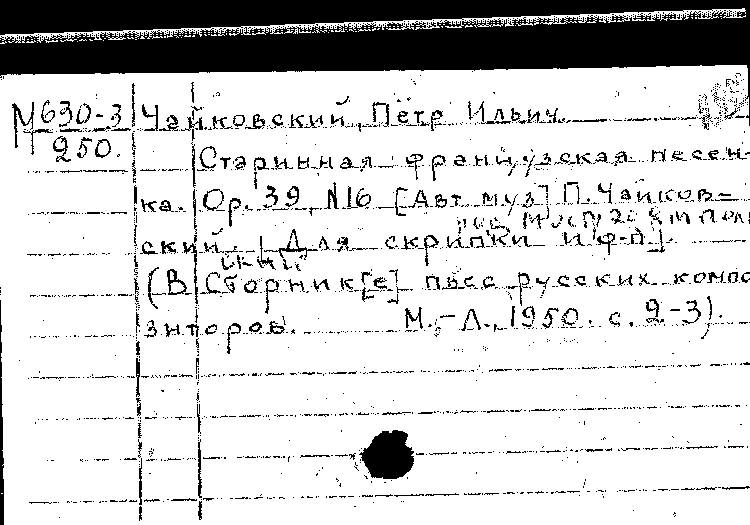 М630-3 Чайковский, Пётр Ильич.
250.
Старинная французская песен-
ка. Op. 39, N16 [Авт муз] П. Чайков-
ский. [Для скрипки и ф-п].
(В Сборник[е] пьес русских компо
зиторов. М.-Л., 1950. с. 2-3).